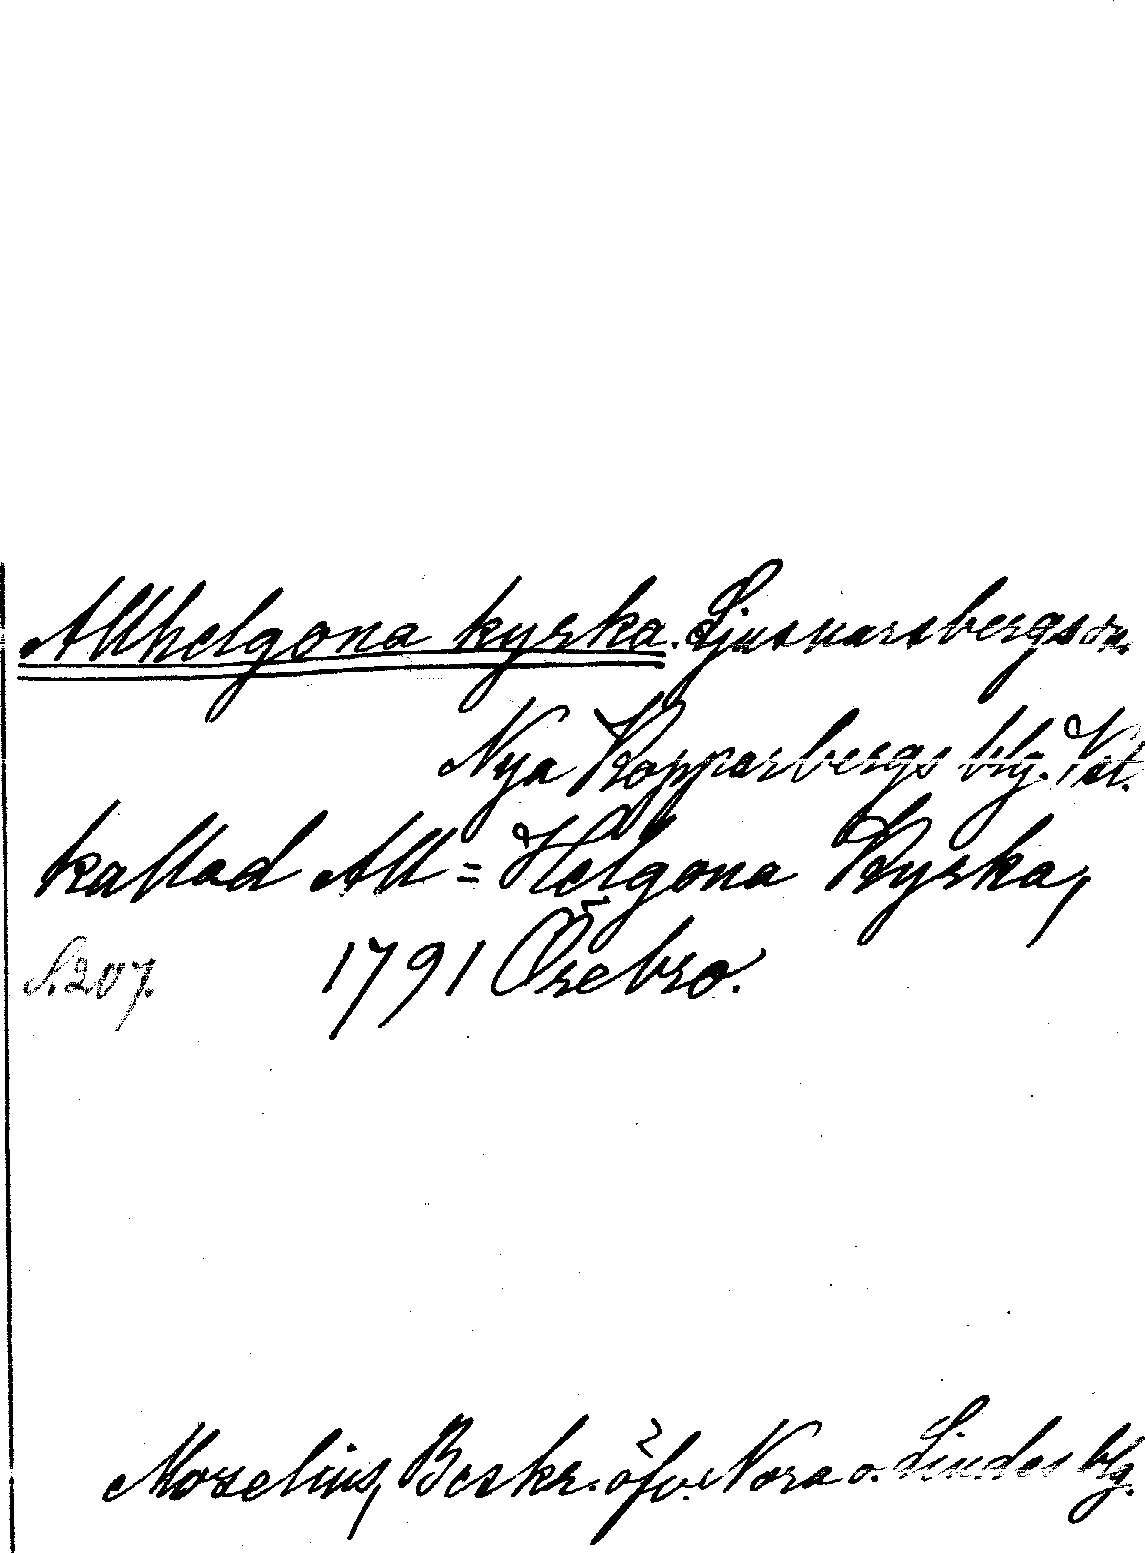 Allhelgona kyrka. Ljusnarsbergs sn.
Nya Kopparbergs blg. Vstl.
kallad All=Helgona Kyrka,
S. 207. 1791 Örebro.
Morelius, Beskr. öfv. Nora o. Lindes blg.